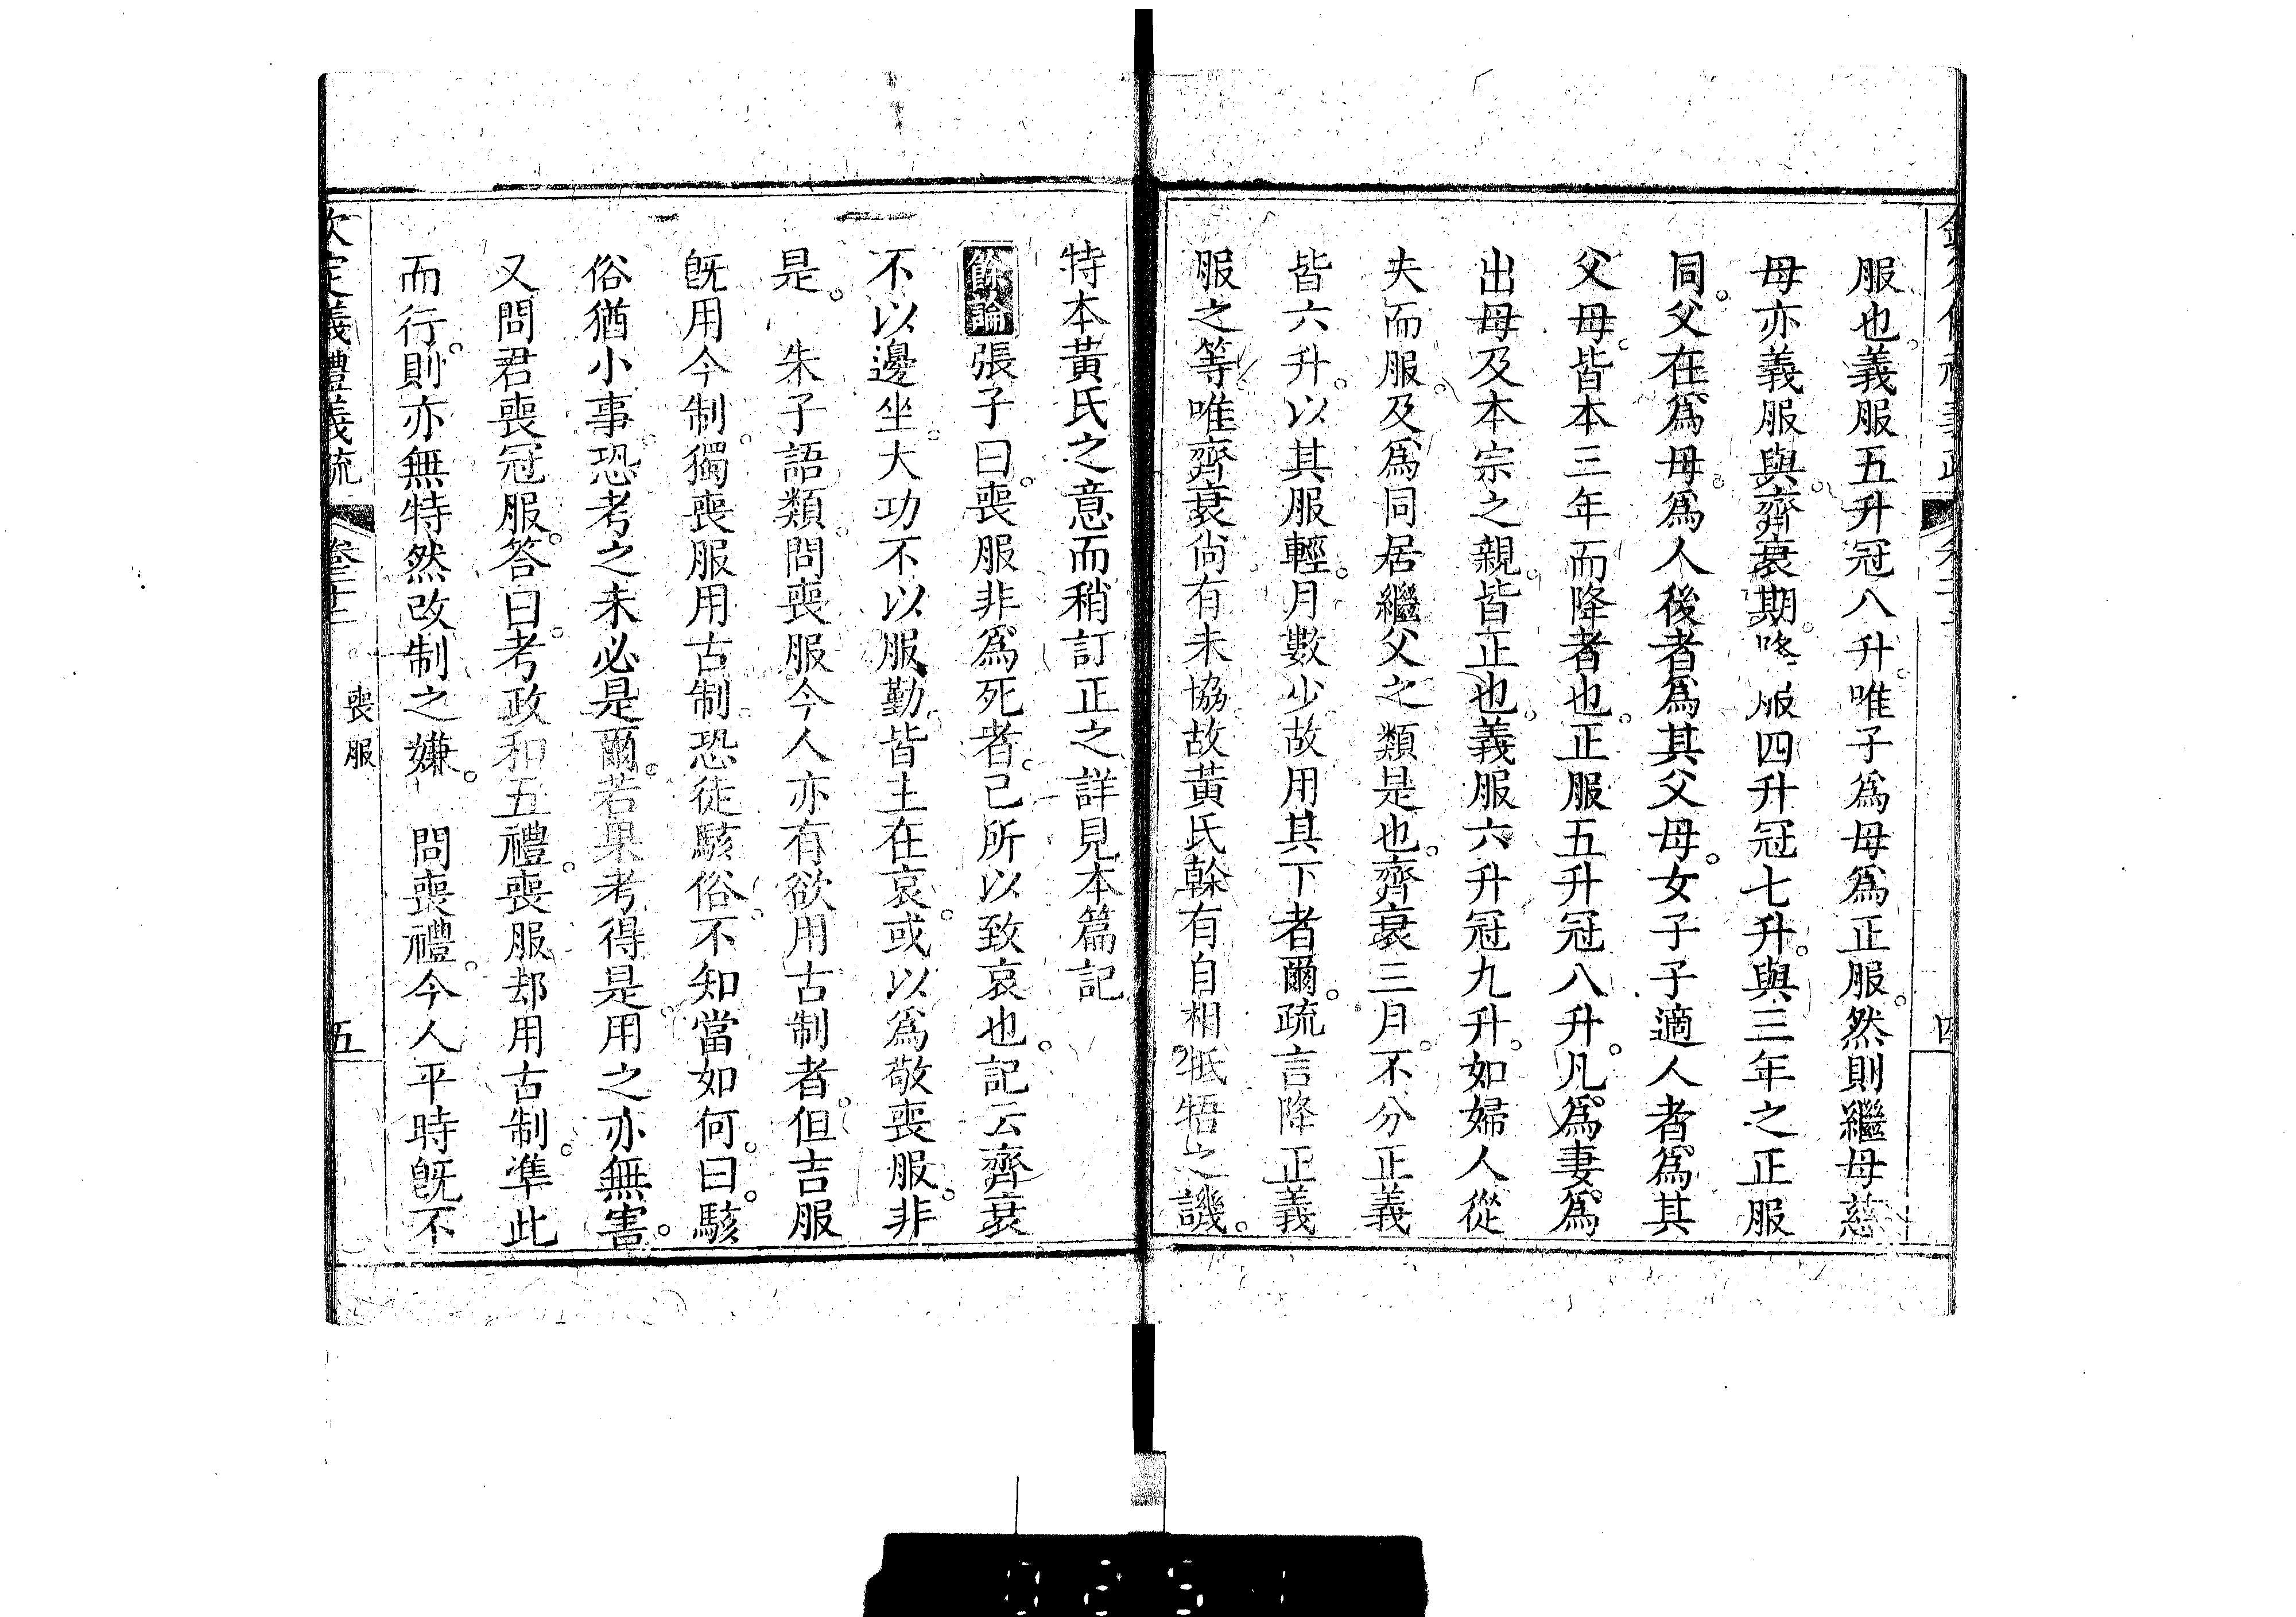 服也義服五升冠八升唯子爲母爲正服然則繼母慈
母亦義服與齊衰期降服四升冠七升與三年之正服
同父在爲母爲人後者爲其父母女子子適人者爲其
父母皆本三年而降者也正服五升冠八升凡爲妻爲
出母及本宗之親皆正也義服六升冠九升如婦人從
夫而服及爲同居繼父之類是也齊衰三月不分正義
皆六升以其服輕月數少故用其下者爾疏言降正義
服之等唯齊衰尚有未協故黃氏榦有自相牴牾之譏
特本黃氏之意而稍訂正之詳見本篇記
餘論張子曰喪服非爲死者己所以致哀也記云齊衰
不以邊坐大功不以服勤皆主在哀或以爲敬喪服非
是 朱子語類問喪服今人亦有欲用古制者但吉服
旣用今制獨喪服用古制恐徒駭俗不知當如何曰駭
俗猶小事恐考之未必是爾若果考得是用之亦無害
又問君喪冠服答曰考政和五禮喪服却用古制準此
而行則亦無特然改制之嫌 問喪禮今人平時旣不
欽定義禮義疏 卷二十二 喪服 五